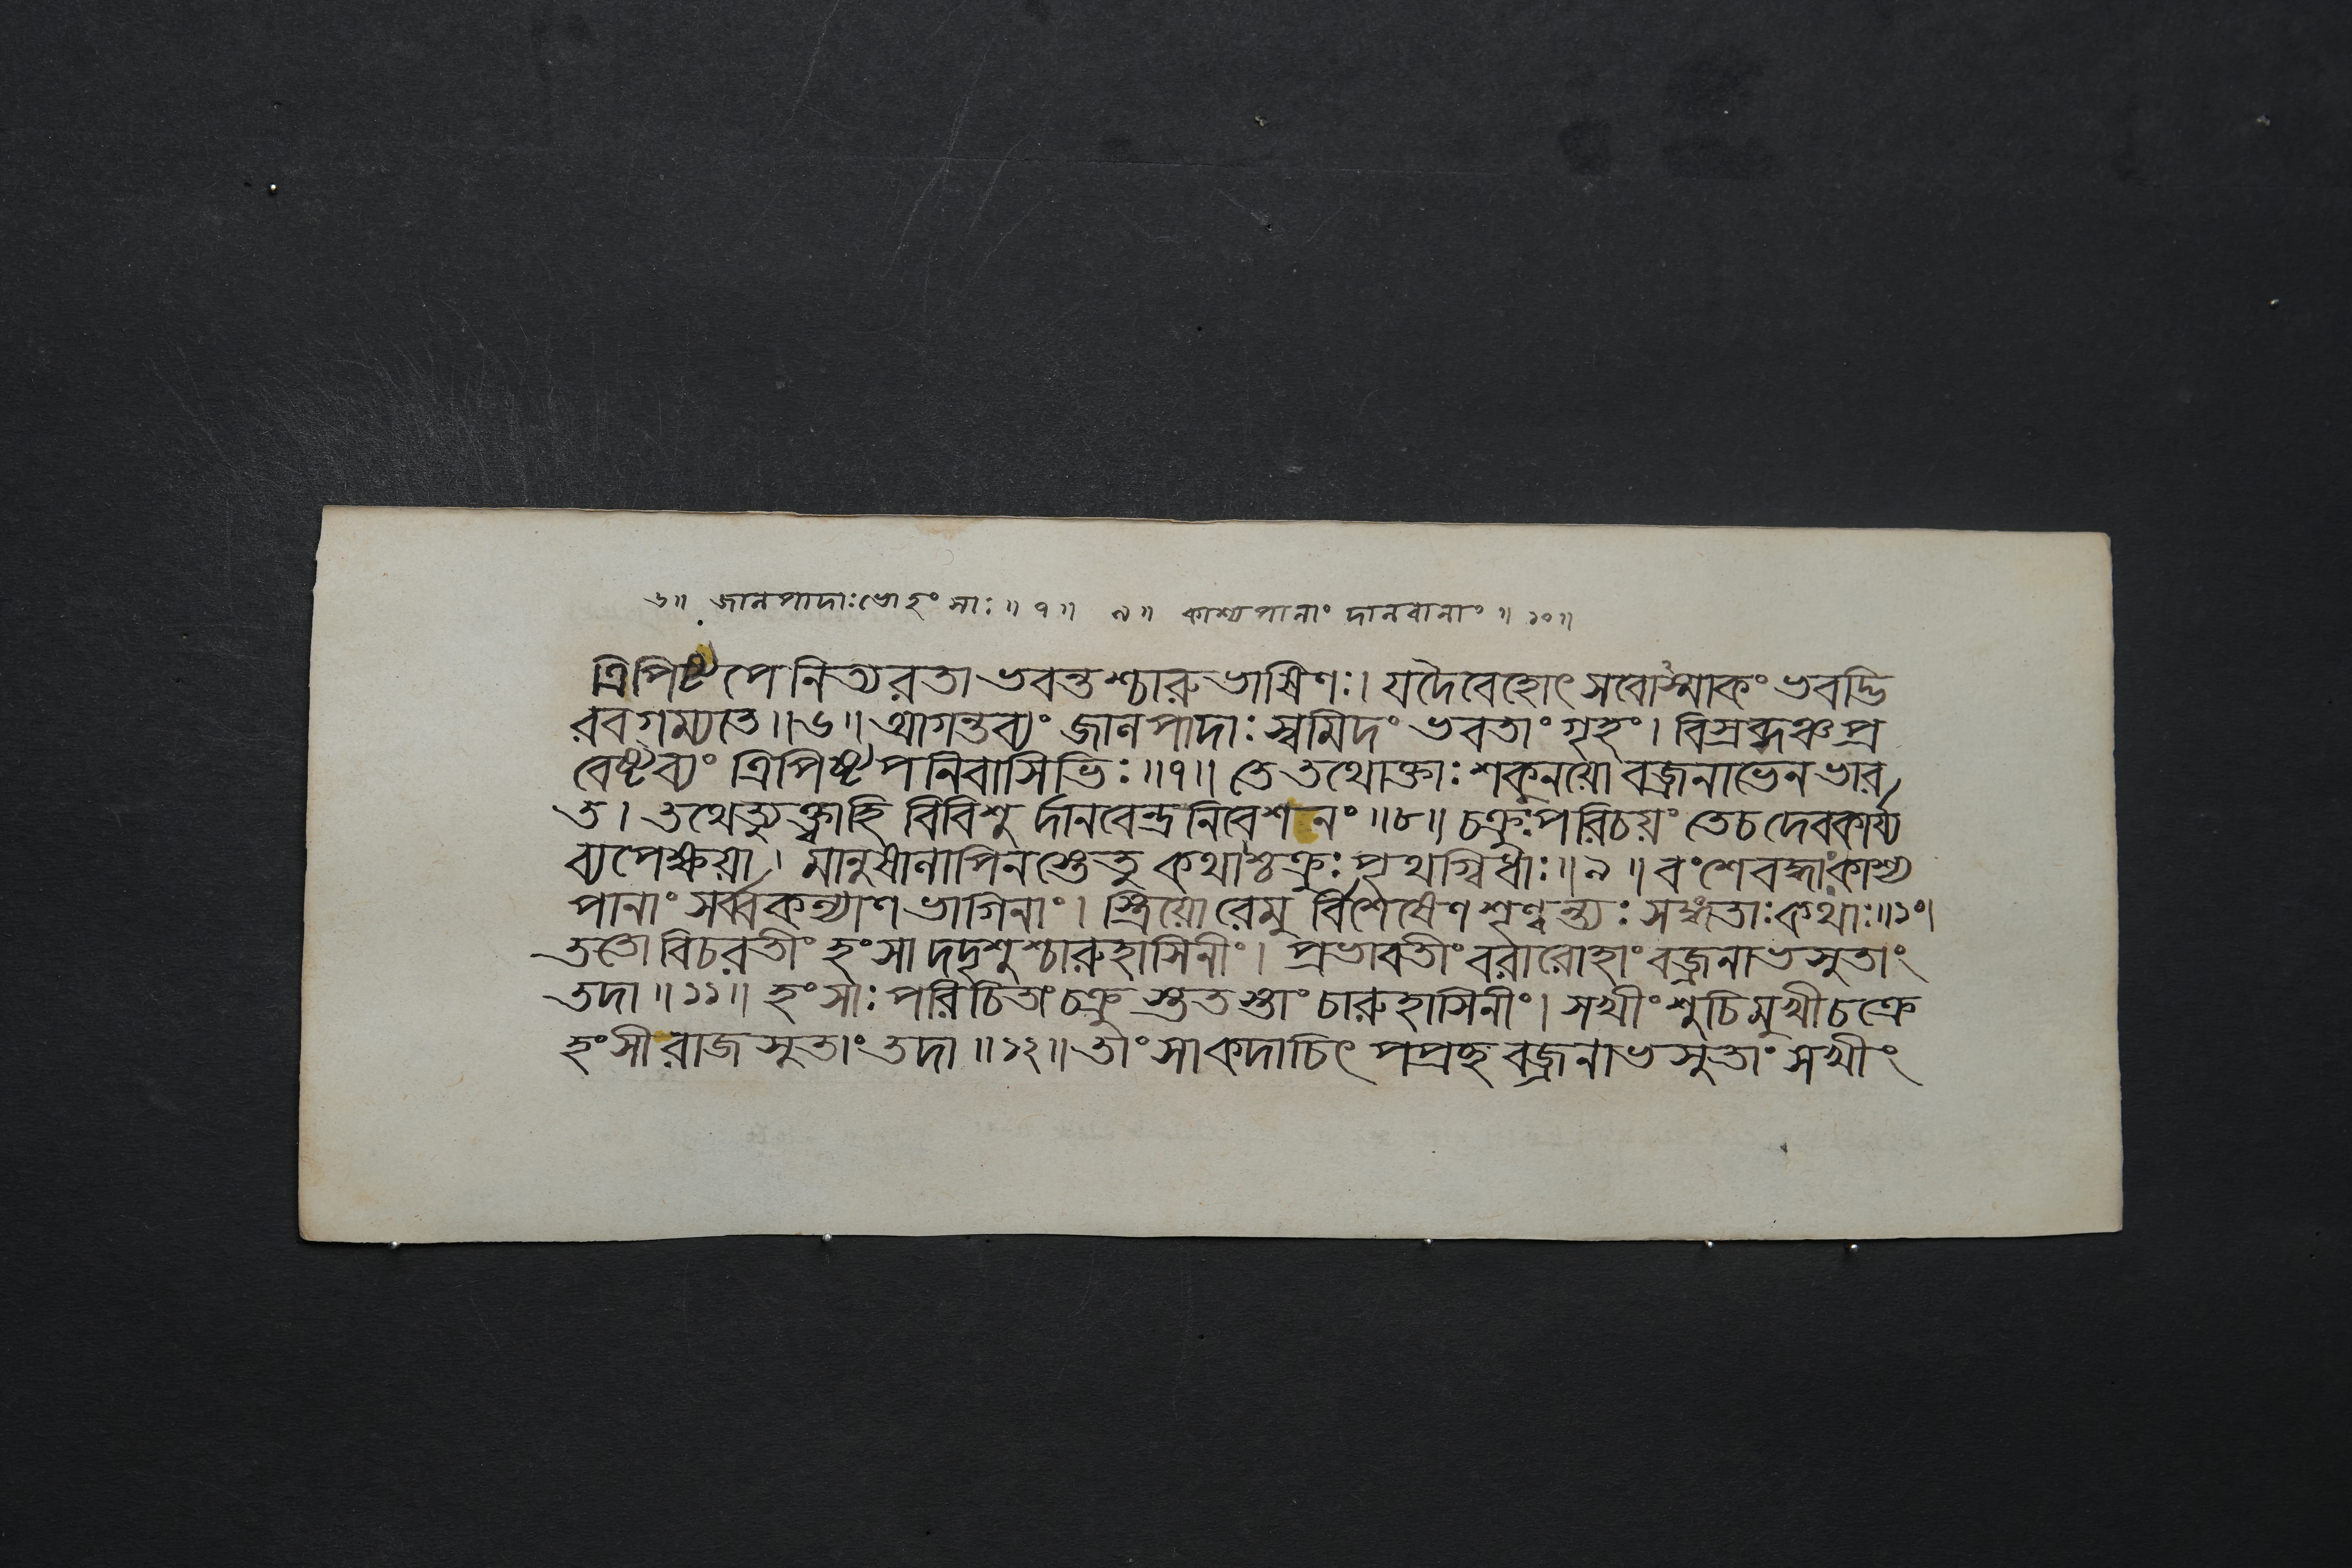 ৬॥ জানপাদাঃ ভো হংসাঃ ॥ ৭ ॥ ৯ ॥ কাশ্যপানাং দানবানাং ॥ ১০ ॥
ত্রিপিষ্টপে নিত্যরতা ভবন্তশ্চারুভাষিণঃ। যদৈবেহোৎসবোস্মাকং ভবদ্ভি
রবগম্যতে ॥ ৬ ॥ আগন্তব্যং জানপাদাঃ স্বমিদং ভবতাং গৃহং। বিস্রব্দঞ্চ প্র
বেষ্টব্যং ত্রিপিষ্টপনিবাসিভিঃ ॥ ৭ ॥ তে তথোক্তাঃ শকুনয়ো বজ্রনাভেন ভার
ত। তথেত্যুক্ত্বাহি বিবিশু র্দানবেন্দ্রনিবেশনং ॥ ৮ ॥ চক্রুঃ পরিচয়ং তেচ দেবকার্য্য
ব্যপেক্ষয়া। মানুষানাপিনস্তেতু কথাশ্চক্রুঃ পৃথগ্বিধাঃ ॥ ৯ ॥ বংশে বদ্ধাং কাশ্য
পানাং সর্ব্বকল্যাণভাগিনাং। স্ত্রিয়ো রেমু র্বিশেষেণ শৃণ্বন্ত্যঃ সঙ্গতাঃ কথাঃ ॥ ১০।
ততো বিচরতীং হংসা দদৃশুশ্চারুহাসিনীং। প্রভাবতীং বরারোহাং বজ্রনাভসুতাং
তদা ॥ ১১ ॥ হংসাঃ পরিচিতাং চক্রু স্তুতস্তাং চারুহাসিনীং। সখীং শুচিমুখী চক্রে
হংসী রাজসুতাং তদা ॥ ১২ ॥ তাং সা কদাচিৎ পপ্রছ বজ্রনাভসুতাং সখীং